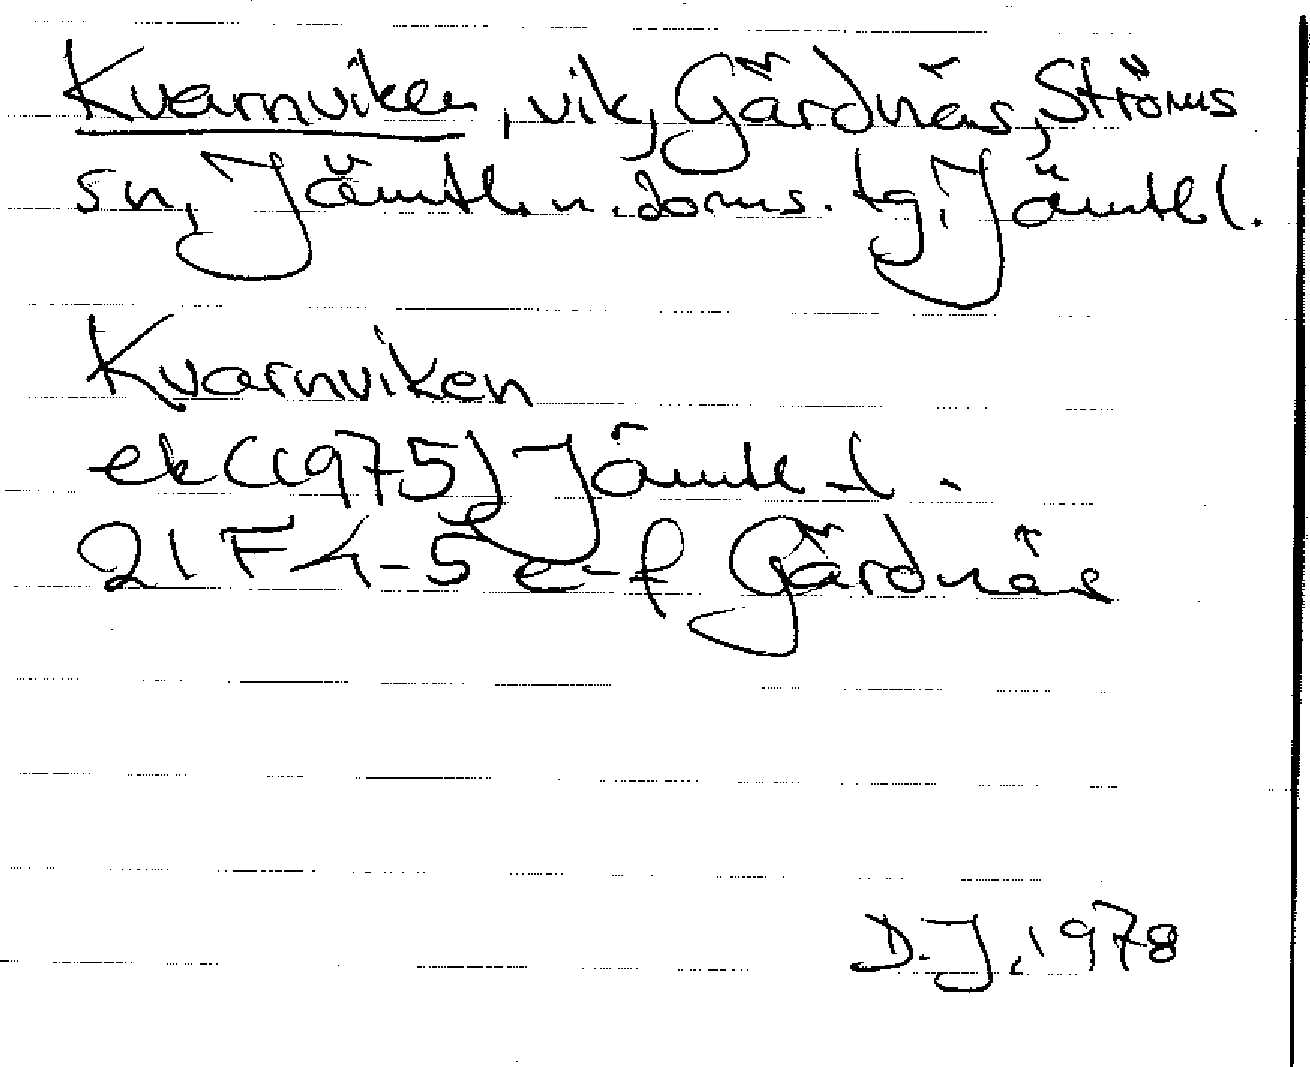 Kvarnviken, vik, Gärdnäs, Ströms
sn, Jämtl. n. doms. tg. Jämtl l.
Kvarnviken
ek (1975) Jämtl l.
21 F 4-5 e-f Gärdnäs
D.J. 1978